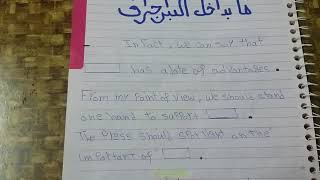 ما بداخل البرجراف
In Fact, we can say that
has a lote of advantages.
From my point of view, we should stand
one hand to support
The press should on the
important of